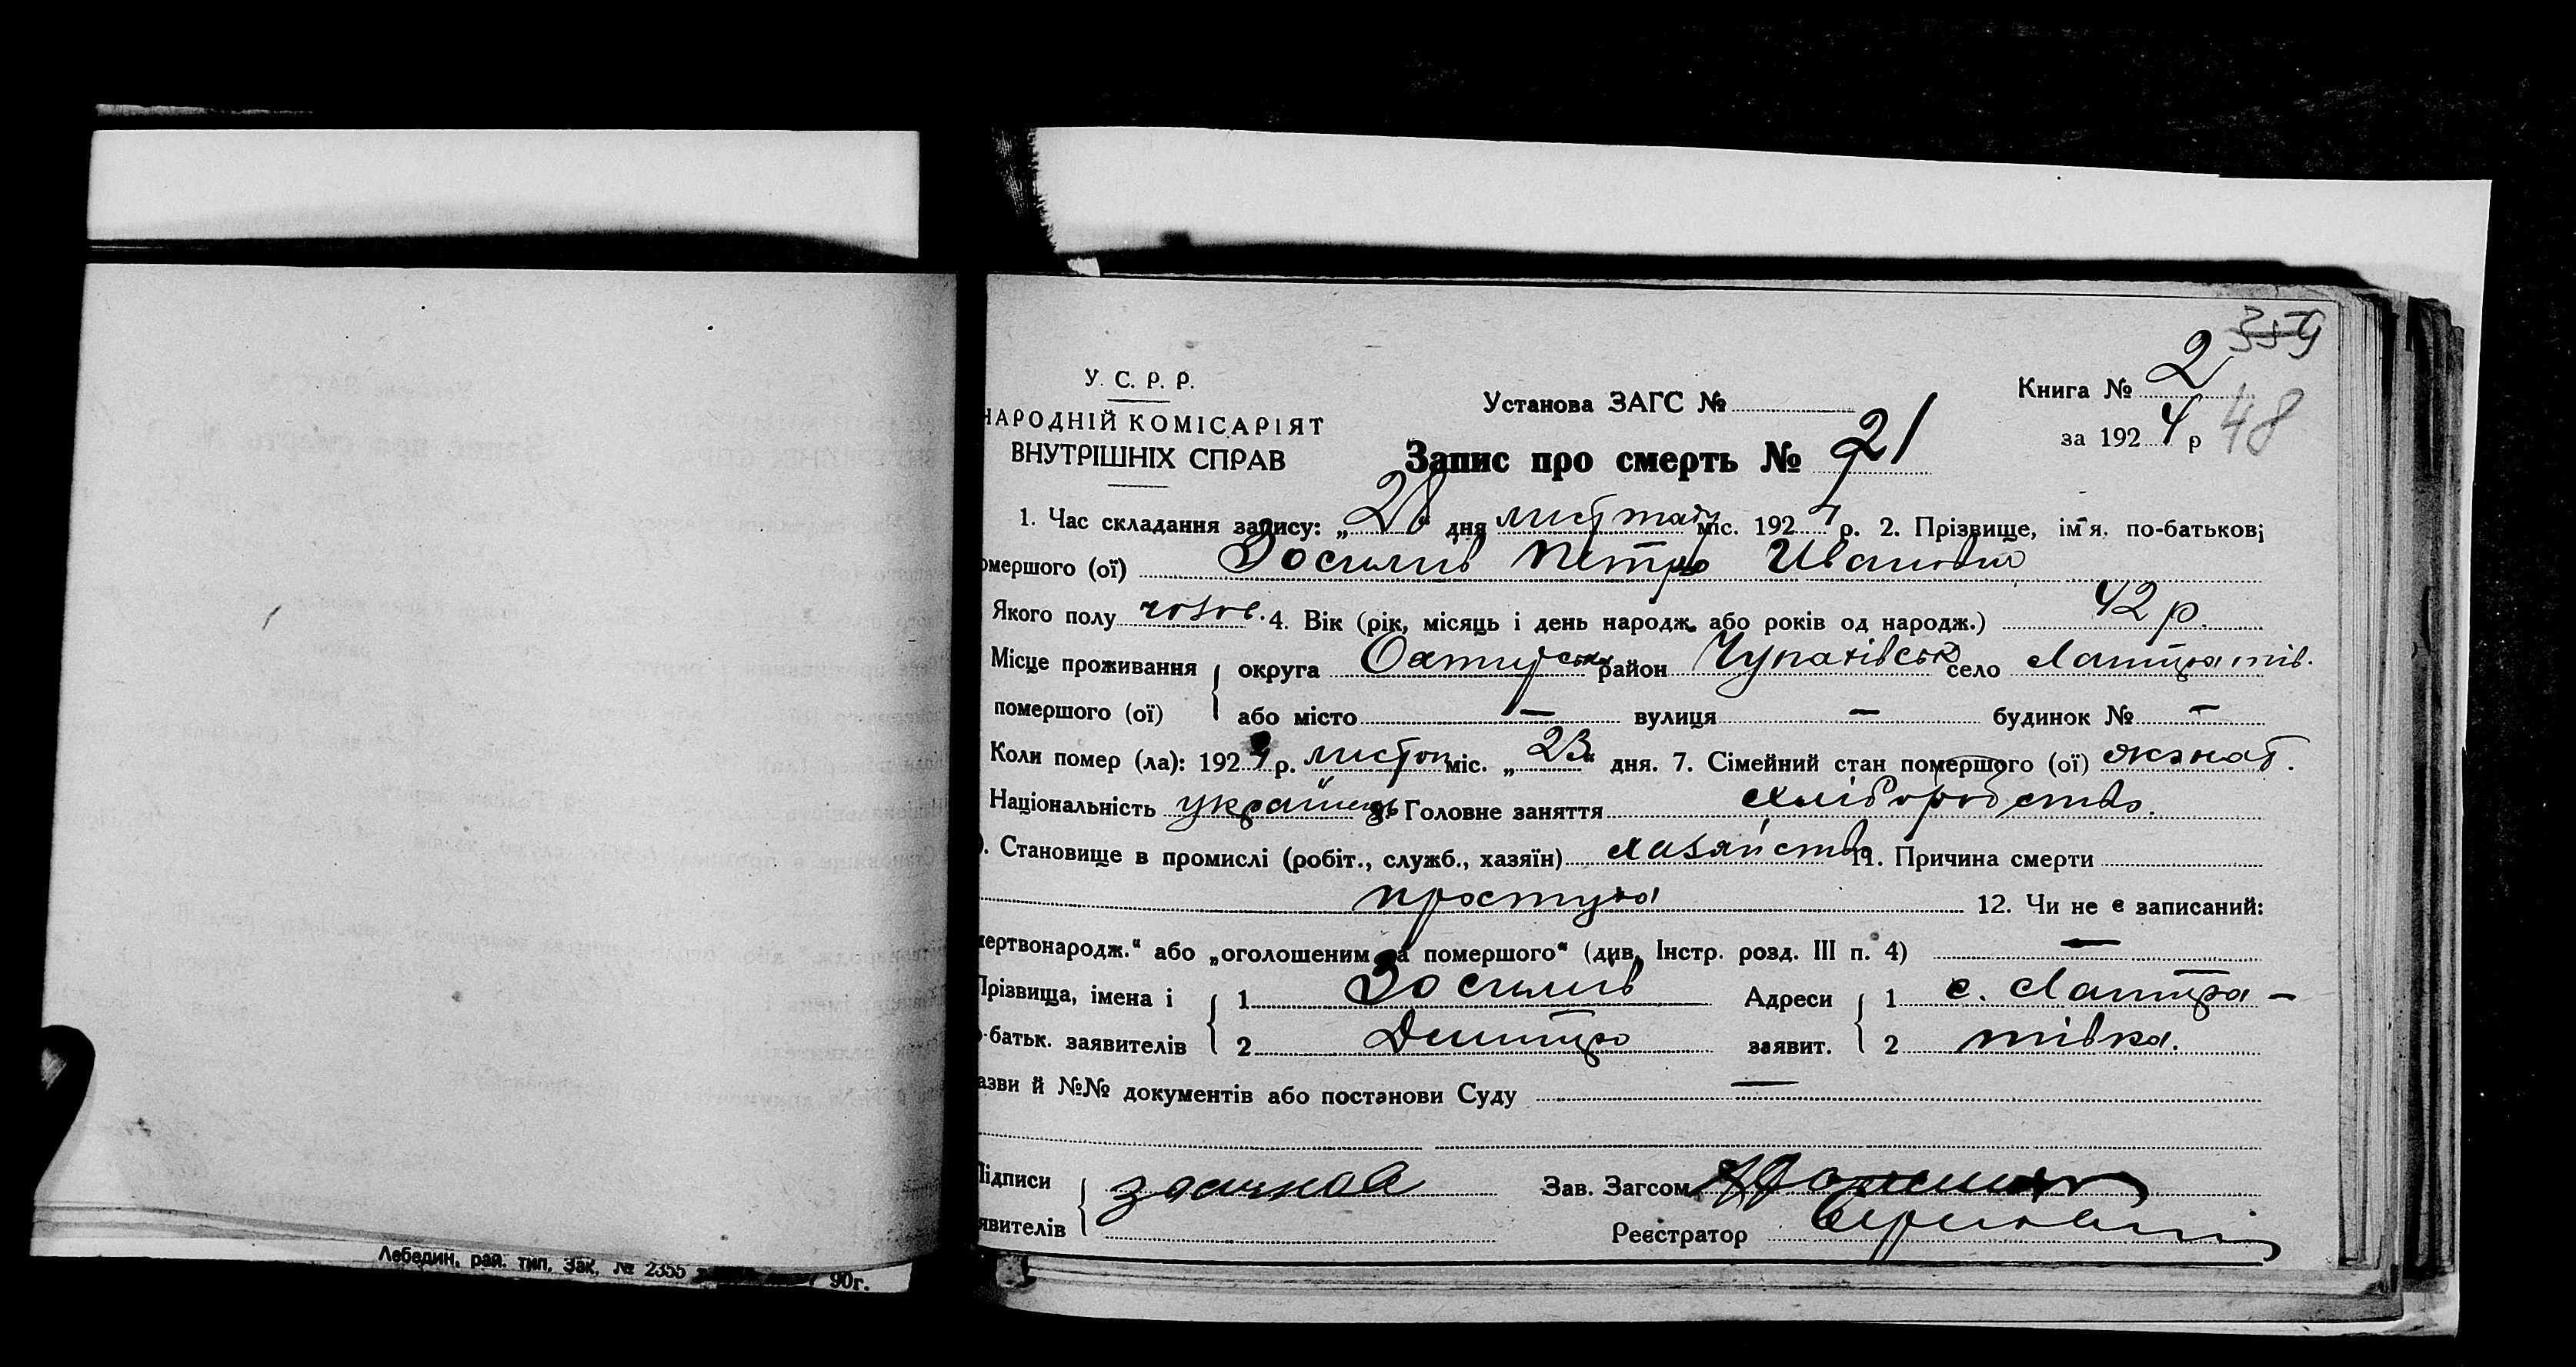 359
У. С. Р. Р.
НАРОДНІЙ КОМІСАРІЯТ
ВНУТРІШНІХ СПРАВ
Установа ЗАГС №
Книга № 2
за 1924 р
48
Запис про смерть № 21
1. Час складання запису: „28“ дня листопаду міс. 1924 р. 2. Прізвище, ім'я, по-батькові
омершого (ої) Петро Иванович
Якого полу чолов. 4. Вік (рік, місяць і день народж. або років од народж.) 42 р.
Місце проживання округа Охтирськ район Чупахівськ село
помершого (ої) або місто — вулиця — будинок № —
Коли помер (ла): 1924 р. листоп міс. „23“ дня. 7. Сімейний стан помершого (ої) жэнат.
Національність українець 9. Головне заняття хліборобство.
). Становище в промислі (робіт., служб., хазяїн) хазяйство 11. Причина смерти
простуда 12. Чи не є записаний:
мертвонародж.“ або „оголошеним за помершого“ (див. Інстр. розд. III п. 4) —
Прізвища, імена і 1 Адреси 1 с.
о-батьк. заявителів 2 Дмитро заявит. 2 тівка.
азви й №№ документів або постанови Суду —
Підписи Зав. Загсом
явителів Реєстратор
Лебедин, рай. тип. Зак. № 2355 90г.